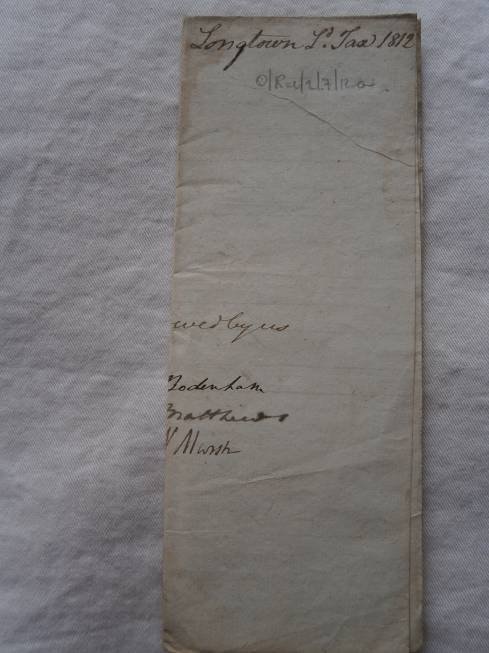 Longtown Ld. Tax 1812
wed by us
Bodenham
Matthews
Marsh